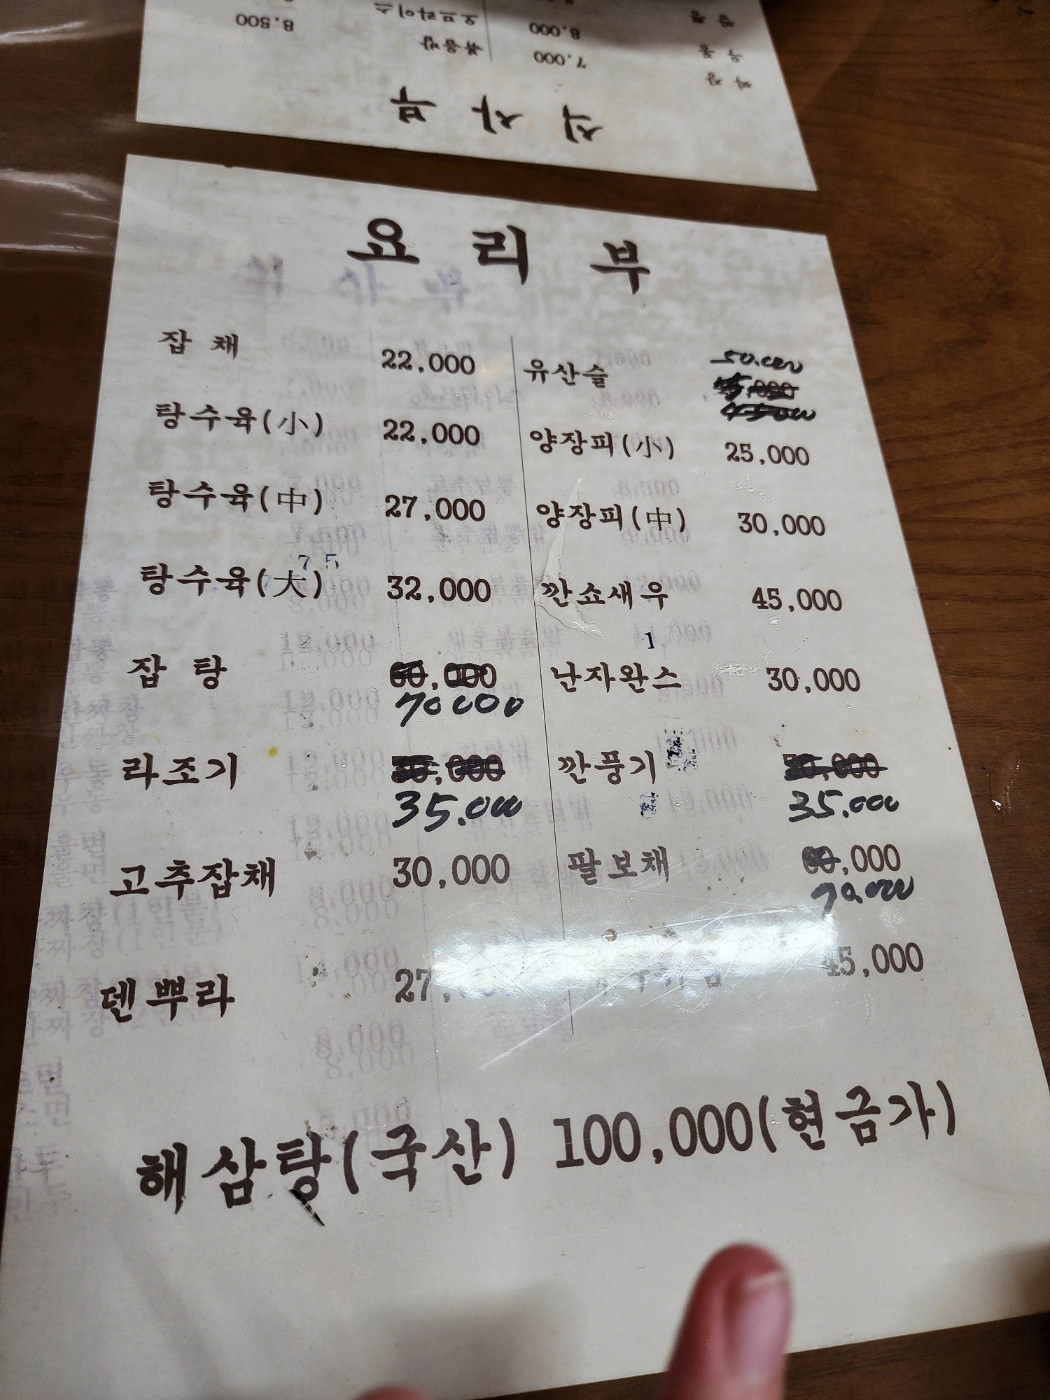 식사부
볶음밥 8,500
오므라이스
7,000
8,000
요리부
잡채 22,000
탕수육(小) 22,000
탕수육(中) 27,000
탕수육(大) 32,000
잡탕 60,000
70000
라조기 30,000
35.000
고추잡채 30,000
덴뿌라 27,
유산슬 50.000
양장피(小) 25,000
양장피(中) 30,000
깐쇼새우 45,000
난자완스 30,000
깐풍기 30,000
35.000
팔보채 60,000
70.000
45,000
해삼탕(국산) 100,000(현금가)